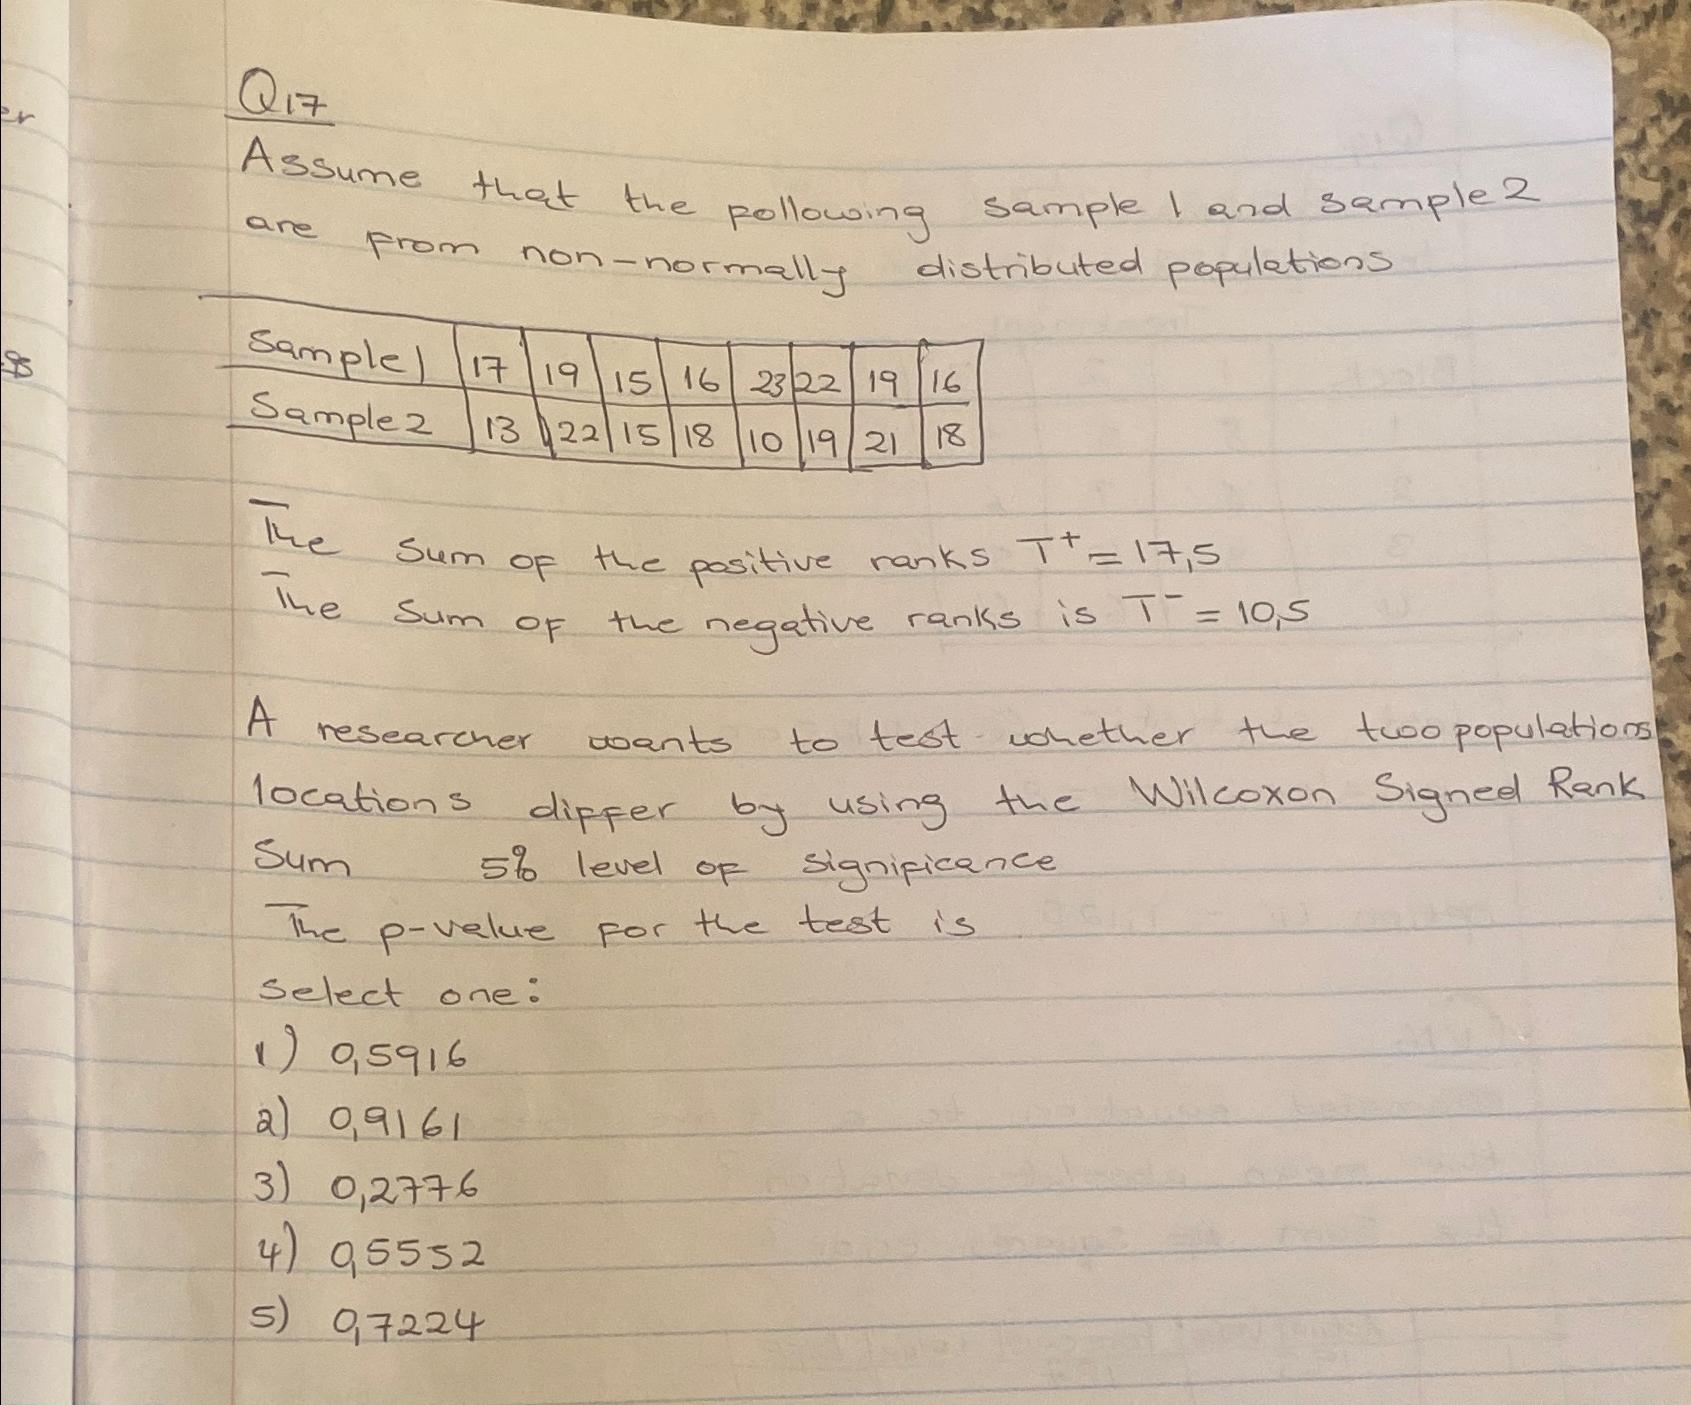 er
Q17
Assume that the following sample 1 and sample 2
are from non-normally distributed populations
Sample 1 17 19 15 16 23 22 19 16
Sample 2 13 22 15 18 10 19 21 18
The sum of the positive ranks T⁺ = 17,5
The sum of the negative ranks is T⁻ = 10,5
A researcher wants to test whether the two populations
locations differ by using the Wilcoxon Signed Rank
Sum 5% level of significance
The p-value for the test is
select one:
1) 0,5916
2) 0,9161
3) 0,2776
4) 0,5552
5) 0,7224